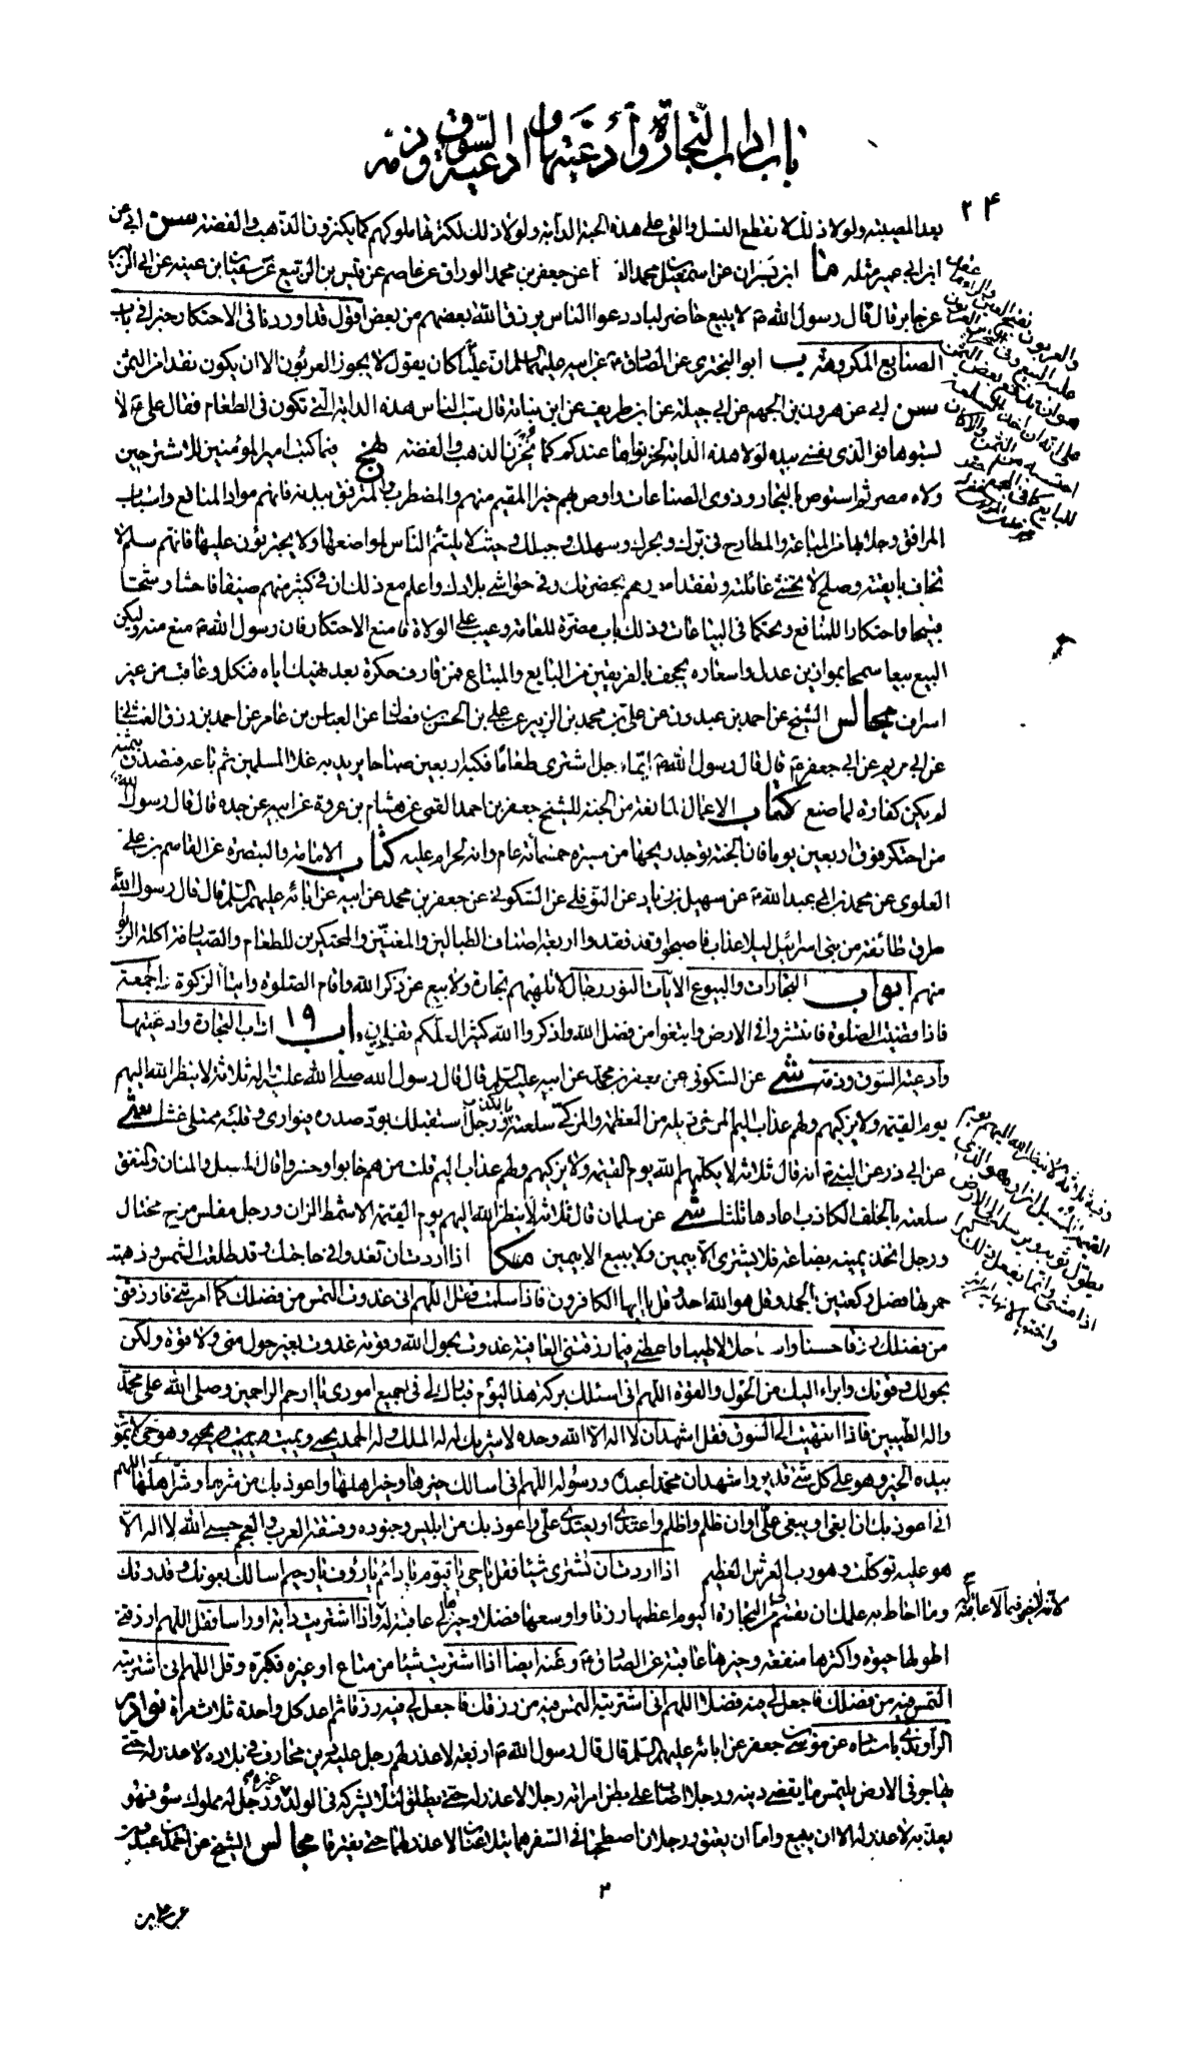 باب اداب التجارة وأدعيتها وادعية السوق وذمه
٢٤
بعد المصيبة ولولا ذلك لانقطع النسل والقى على هذه الحبة الدابة ولولا ذلك لكنزتها ملوكهم كما يكنزون الذهب والفضة سن ابي عن
ابن ابي عمير مثله ما ابن بسران عن اسمعيل بن محمد عن جعفر بن محمد الوراق عن عاصم عن قيس بن الربيع عن سفيان بن عيينة عن ابي الزبير
عن جابر قال قال رسول الله ص لا يبيع حاضر لباد دعوا الناس يرزق الله بعضهم من بعض اقول قد اوردنا في الاحتكار خبرا في باب
الصنايع المكروهة ب ابو البختري عن الصادق ع عن ابيه عليهما السلم ان عليا كان يقول لا يجوز العربون الا ان يكون نقدا من الثمن
سن ابي عن هرون بن الجهم عن ابي جميلة عن ابن طريف عن ابن نباتة قال سب الناس هذه الدابة التي تكون في الطعام فقال علي ع لا
تسبوها فو الذي نفسي بيده لولا هذه الدابة لخزنوها عندكم كما يخزن الذهب والفضة نهج فيما كتب امير المؤمنين للاشتر حين
ولاه مصر ثم استوص بالتجار وذوي الصناعات واوص بهم خيرا المقيم منهم والمضطرب والمترفق ببدنه فانهم مواد المنافع واسباب
المرافق وجلابها من المباعد والمطارح في برك وبحرك وسهلك وجبلك وحيث لا يلتئم الناس لمواضعها ولا يجترؤن عليها فانهم سلم لا
تخاف بايقته وصلح لا تخشى غائلته وتفقد امورهم بحضرتك وفي حواشي بلادك واعلم مع ذلك ان في كثير منهم ضيقا فاحشا وشحا
قبيحا واحتكارا للمنافع وتحكما في البياعات وذلك باب مضرة للعامة وعيب على الولاة فامنع الاحتكار فان رسول الله ص منع منه وليكن
البيع بيعا سمحا بموازين عدل واسعار لا يجحف بالفريقين من البايع والمبتاع فمن قارف حكرة بعد نهيك اياه فنكل وعاقب من غير
اسراف مجالس الشيخ عن احمد بن عبدون عن علي بن محمد بن الزبير عن علي بن الحسن بن فضال عن العباس بن عامر عن احمد بن رزق الغشاني
عن ابي مريم عن ابي جعفر ع قال قال رسول الله ص ايما رجل اشترى طعاما فكبسه اربعين صباحا يريد به غلا المسلمين ثم باعه فتصدق بثمنه
لم يكن كفارة لما صنع كتاب الاعمال المانعة من الجنة للشيخ جعفر بن احمد القمي عن هشام بن عروة عن ابيه عن جده قال قال رسول الله
من احتكر فوق اربعين يوما فان الجنة توجد ريحها من مسيرة خمسمائة عام وانه لحرام عليه كتاب الامامة والتبصرة عن القاسم بن علي
العلوي عن محمد بن ابي عبد الله ع عن سهل بن زياد عن النوفلي عن السكوني عن جعفر بن محمد عن ابيه عن ابائه عليهم السلم قال قال رسول الله
طرق طائفة من بني اسرائيل ليلا عذاب فاصبحوا وقد فقدوا اربعة اصناف الطبالين والمغنين والمحتكرين للطعام والصيارفة اكلة الربو
منهم ابواب التجارات والبيوع الايات النور رجال لا تلهيهم تجارة ولا بيع عن ذكر الله واقام الصلوة وايتاء الزكوة الجمعة
فاذا قضيت الصلوة فانتشروا في الارض وابتغوا من فضل الله واذكروا الله كثيرا لعلكم تفلحون باب ١٩ اداب التجارة وادعيتها
وادعية السوق وذمه شي عن السكوني عن جعفر بن محمد عن ابيه عليه السلم قال قال رسول الله صلى الله عليه واله ثلاثة لا ينظر الله اليهم
يوم القيمة ولا يزكيهم ولهم عذاب اليم المرخي ذيله من العظمة والمزكي سلعته بالكذب ورجل استقبلك بود صدره فيواري وقلبه ممتلى غشا شي
عن ابي ذر عن النبي ص انه قال ثلاثة لا يكلمهم الله يوم القيمة ولا يزكيهم ولهم عذاب اليم قلت من هم خابوا وخسروا قال المسبل والمنان والمنفق
سلعته بالحلف الكاذب اعادها ثلثا شي عن سلمان قال ثلاثة لا ينظر الله اليهم يوم القيمة الاشمط الزان ورجل مفلس مرح مختال
ورجل اتخذ يمينه بضاعة فلا يشتري الا بيمين ولا يبيع الا بيمين مكا اذا اردت ان تغدو الى حاجتك وقد طلعت الشمس وذهبت
حمرتها فصل ركعتين بالحمد وقل هو الله احد وقل يا ايها الكافرون فاذا سلمت فقل اللهم اني غدوت التمس من فضلك كما امرتني فارزقني
من فضلك رزقا حسنا واسعا حلالا طيبا واعطني فيما رزقتني العافية غدوت بحول الله وقوته غدوت بغير حول مني ولا قوة ولكن
بحولك وقوتك وابراء اليك من الحول والقوة اللهم اني اسئلك بركة هذا اليوم فبارك لي في جميع اموري يا ارحم الراحمين وصلى الله على محمد
واله الطيبين فاذا انتهيت الى السوق فقل اشهد ان لا اله الا الله وحده لا شريك له له الملك وله الحمد يحيي ويميت ويميت ويحيي وهو حي لا يموت
بيده الخير وهو على كل شئ قدير واشهد ان محمدا عبده ورسوله اللهم اني اسالك خيرها وخير اهلها واعوذ بك من شرها وشر اهلها اللهم
اني اعوذ بك ان ابغي او يبغى علي او ان اظلم او اظلم او اعتدي او يعتدى علي واعوذ بك من ابليس وجنوده وفسقة العرب والعجم حسبي الله لا اله الا
هو عليه توكلت وهو رب العرش العظيم اذا اردت ان تشتري شيئا فقل يا حي يا قيوم يا دائم يا رؤف يا رحيم اسالك بعونك وقدرتك
وما احاط به علمك ان تقسم لي من التجارة اليوم اعظمها رزقا واوسعها فضلا وخيرها لي عاقبة لانه لا خير فيما لا عاقبة له واذا اشتريت دابة او راسا فقل اللهم ارزقني
اطولها حيوة واكثرها منفعة وخيرها عاقبة عن الصادق ع وعنه ايضا اذا اشتريت شيئا من متاع او غيره فكبر وقل اللهم اني اشتريته
التمس فيه من فضلك فاجعل لي فيه فضلا اللهم اني اشتريته التمس فيه من رزقك فاجعل لي فيه رزقا ثم اعد كل واحدة ثلاث مراة نوادر
الراوندي باسناده عن موسى بن جعفر عن ابائه عليهم السلم قال قال رسول الله ص اربعة لا عذر لهم رجل عليه دين محارف في بلاده لا عذر له حتى
يهاجر في الارض يلتمس ما يقضي دينه ورجل اصاب على بطن امراته رجلا لا عذر له حتى يطلق لئلا يشركه في الولد غيره ورجل له مملوك سوء فهو
يعذبه لا عذر له الا ان يبيع واما ان يعتق ورجلان اصطحبا في السفر هما يتلاعنان لا عذر لهما حتى يفترقا مجالس الشيخ عن احمد بن عبدون
٣
عن علي بن